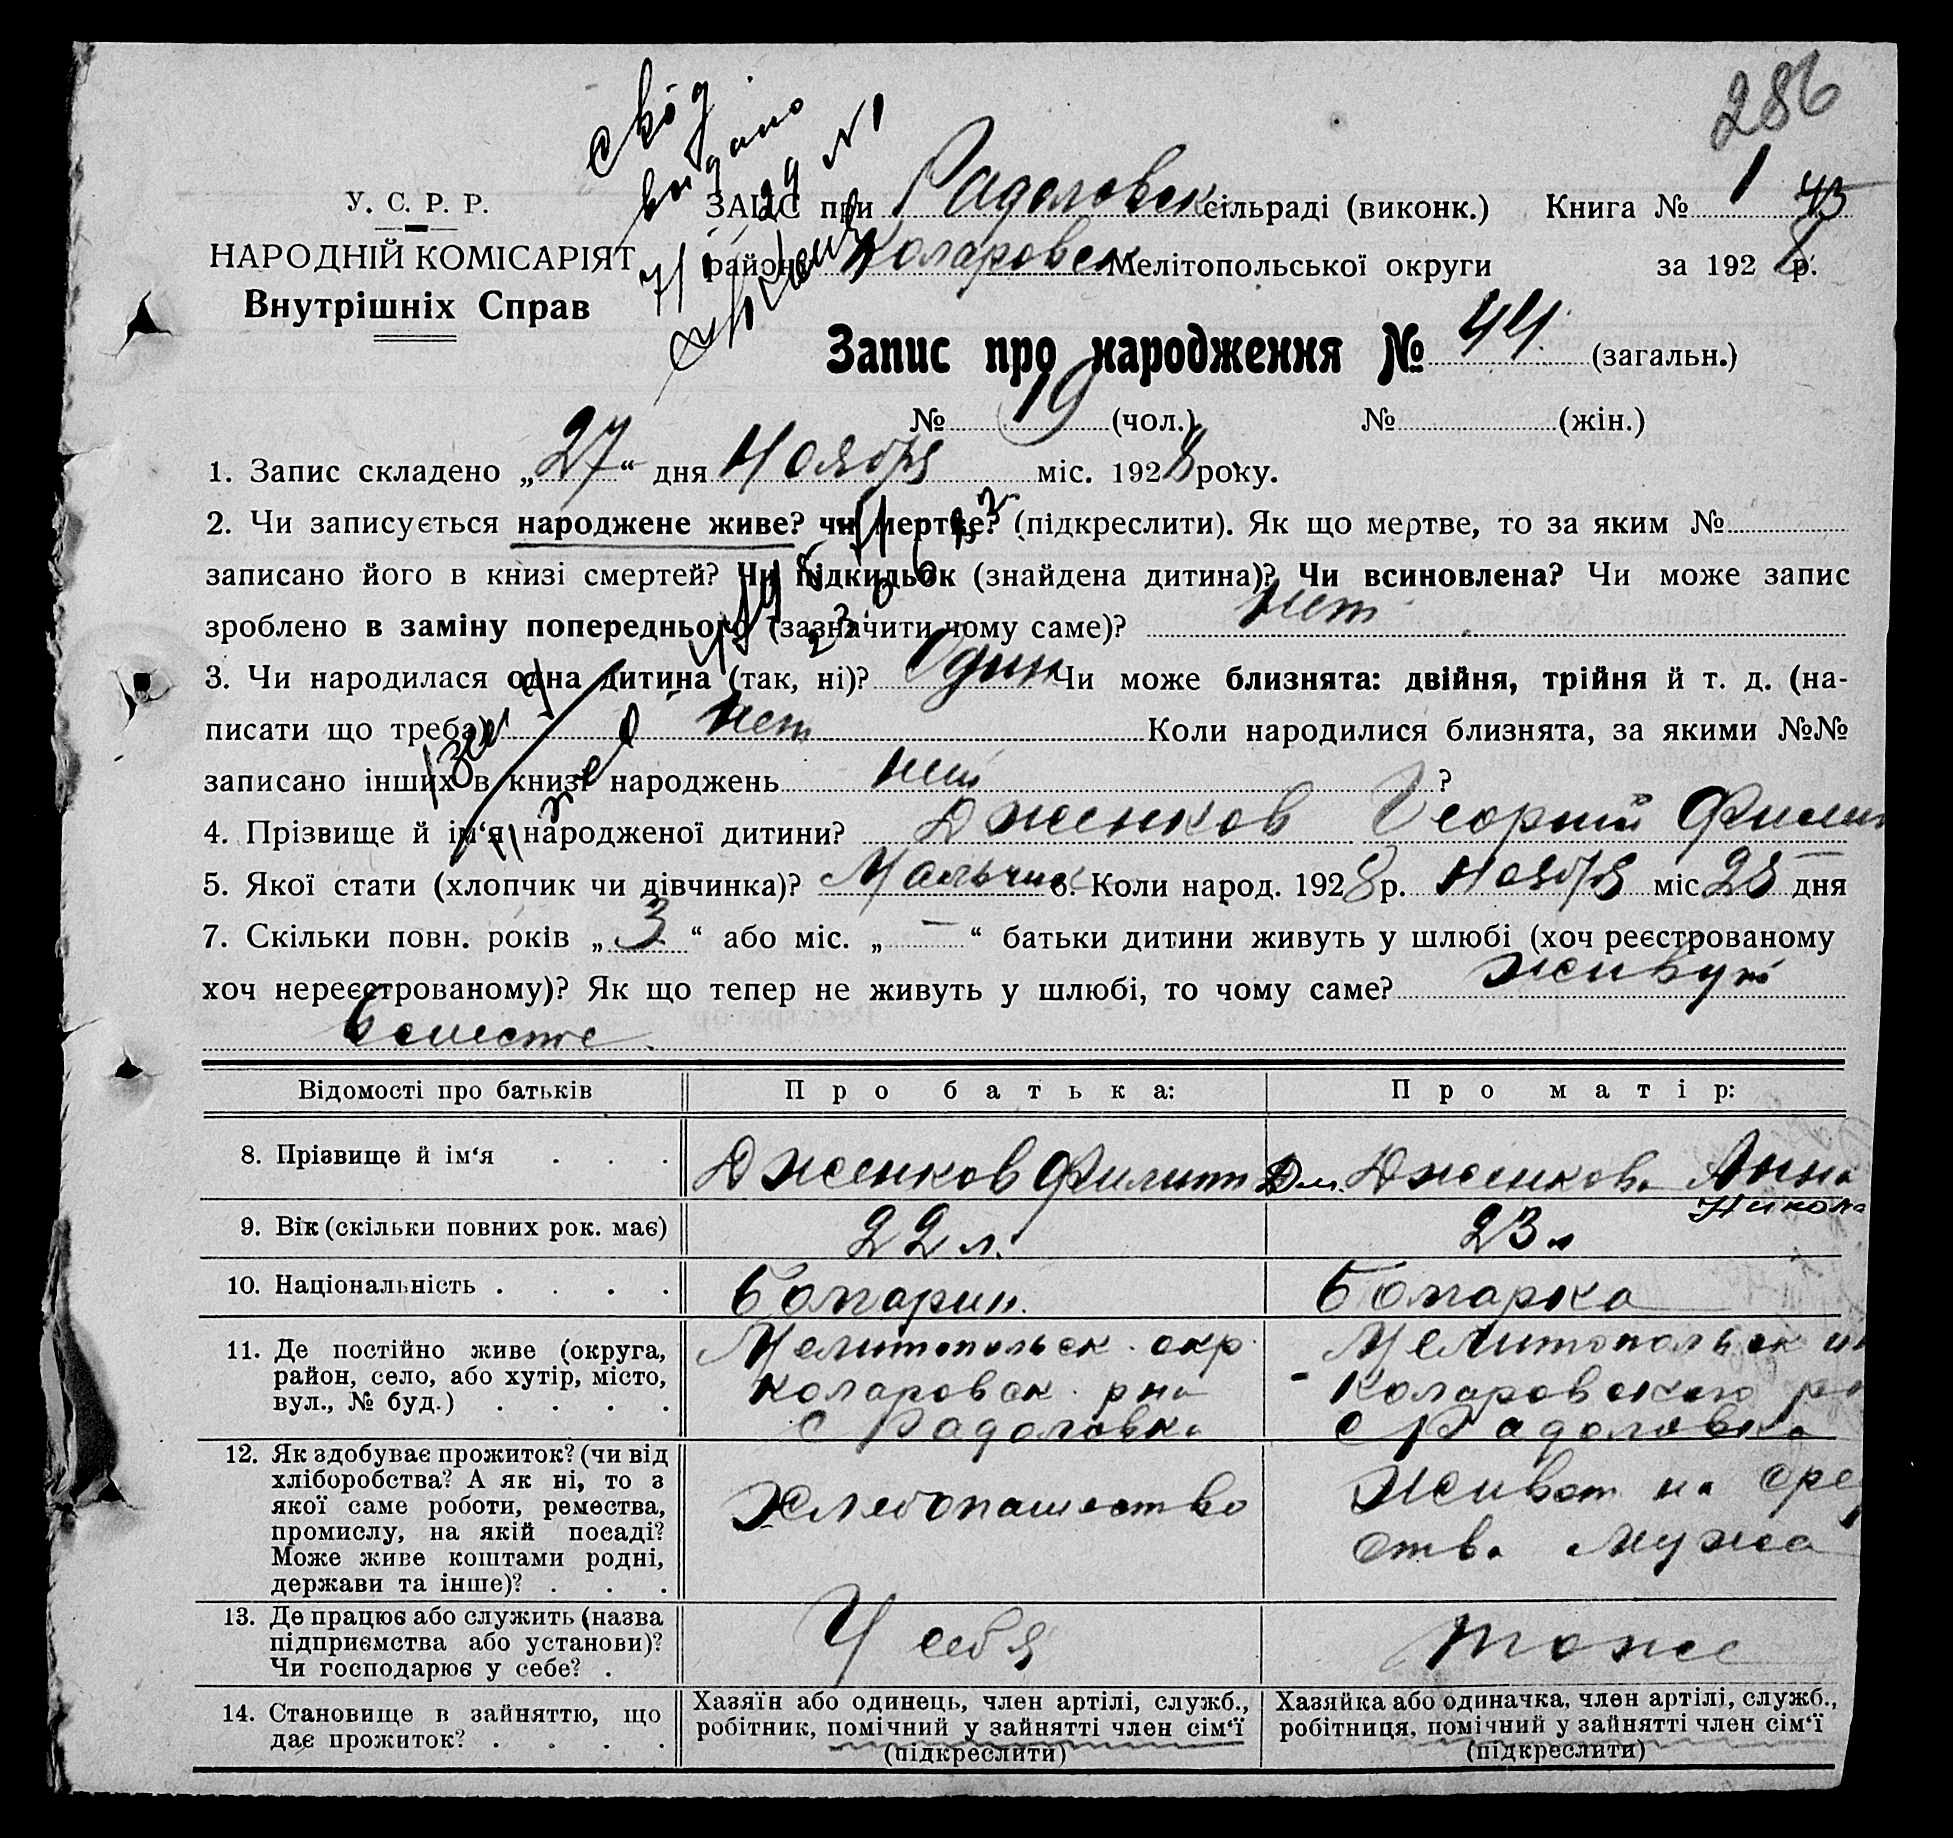 286
свід
видано
У. С. Р. Р.
ЗАЦС при Радоловск сільраді (виконк.) Книга № 1 43
НАРОДНІЙ КОМІСАРІЯТ
району Коларовск Мелітопольської округи за 1928 р.
Внутрішніх Справ
Запис про народження № 44 (загальн.)
№ 19 (чол.) № (жін.)
1. Запис складено „27“ дня Ноября міс. 1928 року.
2. Чи записується народжене живе? чи мертве? (підкреслити). Як що мертве, то за яким №
записано його в книзі смертей? Чи підкидьок (знайдена дитина)? Чи всиновлена? Чи може запис
зроблено в заміну попереднього (зазначити чому саме)? нет
3. Чи народилася одна дитина (так, ні)? Один Чи може близнята: двійня, трійня й т. д. (на-
писати що треба) нет Коли народилися близнята, за якими №№
записано інших в книзі народжень нет ?
4. Прізвище й ім‘я народженої дитини? Дженков Георгий Филип
5. Якої стати (хлопчик чи дівчинка)? Мальчик 6. Коли народ. 1928 р. Ноября міс 25 дня
7. Скільки повн. років „3“ або міс. „—“ батьки дитини живуть у шлюбі (хоч реєстрованому
хоч нереєстрованому)? Як що тепер не живуть у шлюбі, то чому саме? живут
вместе.
Відомості про батьків Про батька: Про матір:
8. Прізвище й ім‘я . . . Дженков Филипп Дм. Дженкова Анна
Никола
9. Вік (скільки повних рок. має) 22 л. 23 л
10. Національність . . . . Болгарин. Болгарка
11. Де постійно живе (округа, Мелитопольск. окр Мелитопольск
район, село, або хутір, місто, Коларовск. рна Коларовского р
вул., № буд.) . . . . с Радоловка с Радоловка
12. Як здобуває прожиток? (чи від
хліборобства? А як ні, то з
якої саме роботи, ремества, Хлебопашество Живет на сред
промислу, на якій посаді? ства мужа
Може живе коштами родні,
держави та інше)? . . .
13. Де працює або служить (назва
підприємства або установи)? У себя тоже
Чи господарює у себе? .
14. Становище в зайняттю, що Хазяїн або одинець, член артілі, служб., Хазяйка або одиначка, член артілі, служб.,
дає прожиток? . . . . робітник, помічний у зайнятті член сім‘ї робітниця, помічний у зайнятті член сім‘ї
(підкреслити) (підкреслити)